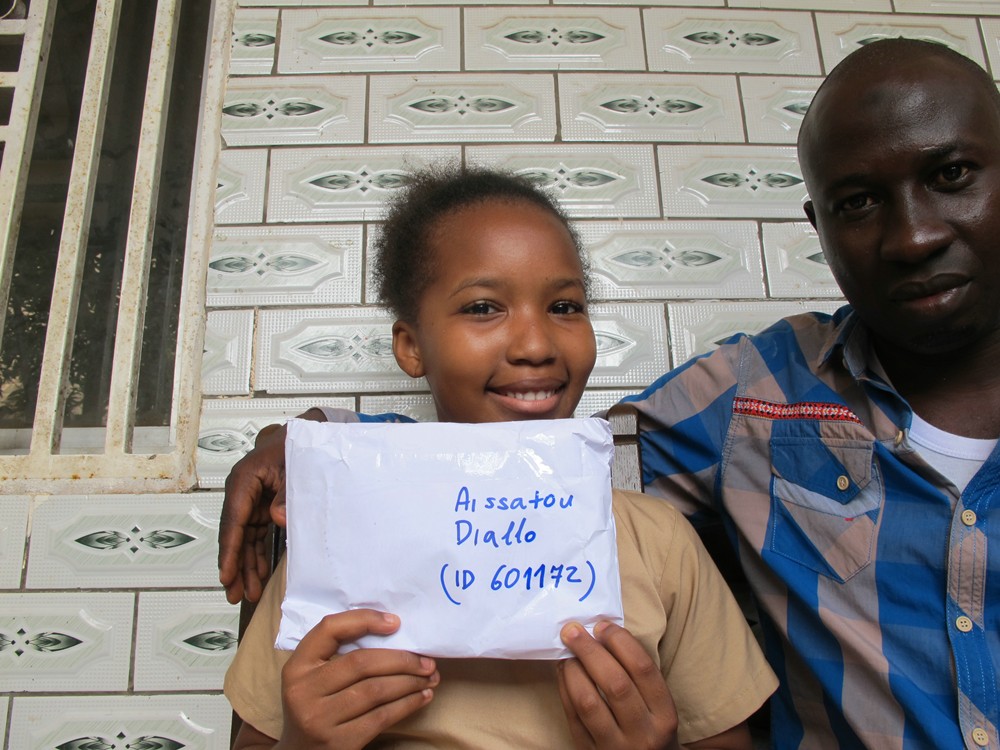 Aissatou
Diallo
(ID 601172)